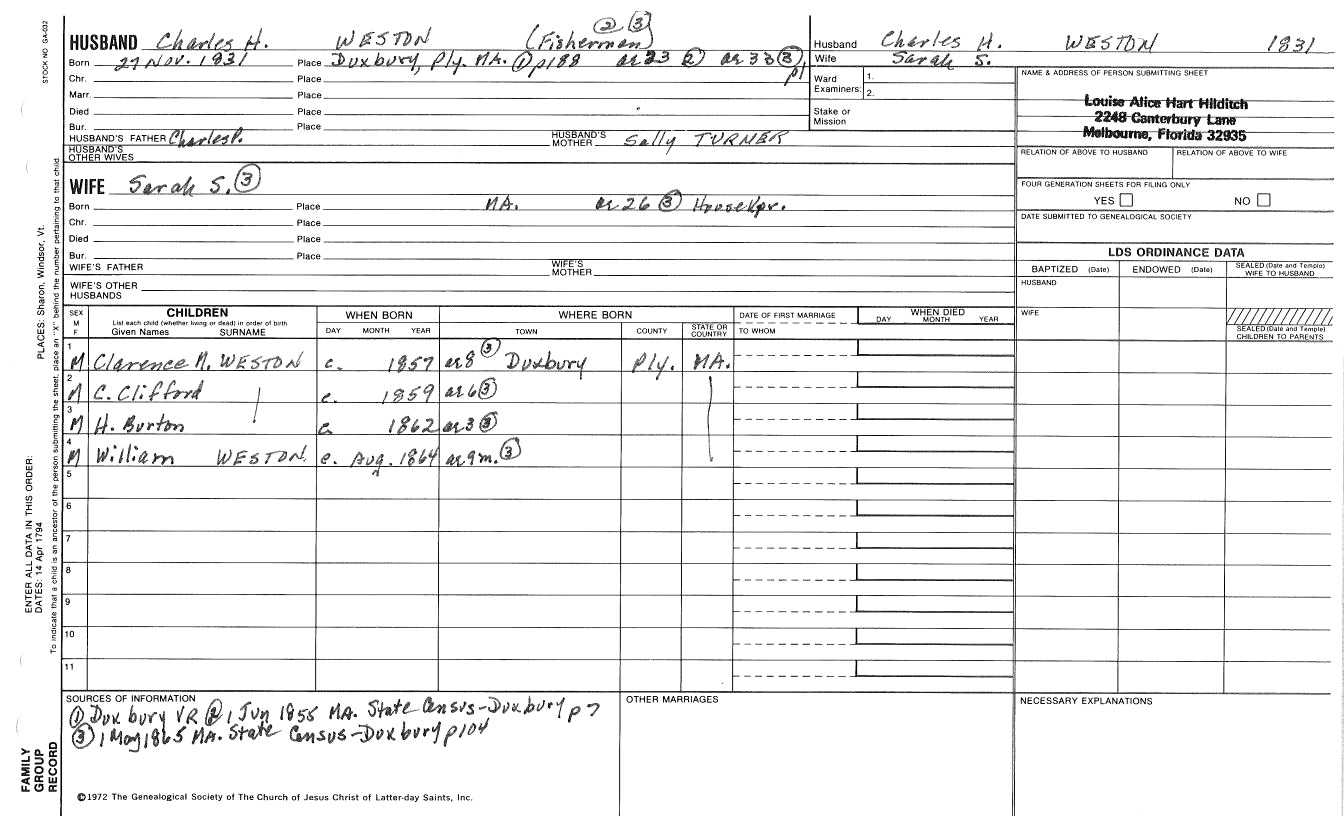 STOCK NO. GA-032
② ③
HUSBAND Charles H. WESTON (Fisherman)
Born 27 Nov. 1831 Place Duxbury, Ply. MA. ① p188 ae 23 ② ae 33 ③ p1
Chr. Place
Marr. Place
Died Place
Bur. Place
HUSBAND'S FATHER Charles P. HUSBAND'S MOTHER Sally TURNER
HUSBAND'S OTHER WIVES
WIFE Sarah S. ③
Born Place MA. ae 26 ③ Housekpr.
Chr. Place
Died Place
Bur. Place
WIFE'S FATHER WIFE'S MOTHER
WIFE'S OTHER HUSBANDS
Husband Charles H. WESTON 1831
Wife Sarah S.
Ward Examiners: 1.
2.
Stake or Mission
NAME & ADDRESS OF PERSON SUBMITTING SHEET
Louise Alice Hart Hilditch
2248 Canterbury Lane
Melbourne, Florida 32935
RELATION OF ABOVE TO HUSBAND RELATION OF ABOVE TO WIFE
FOUR GENERATION SHEETS FOR FILING ONLY
YES NO
DATE SUBMITTED TO GENEALOGICAL SOCIETY
LDS ORDINANCE DATA
BAPTIZED (Date) ENDOWED (Date) SEALED (Date and Temple) WIFE TO HUSBAND
HUSBAND
WIFE
SEALED (Date and Temple) CHILDREN TO PARENTS
SEX M F CHILDREN WHEN BORN WHERE BORN DATE OF FIRST MARRIAGE WHEN DIED
List each child (whether living or dead) in order of birth
Given Names SURNAME DAY MONTH YEAR TOWN COUNTY STATE OR COUNTRY TO WHOM DAY MONTH YEAR
1 M Clarence N. WESTON c. 1857 ae 8 ③ Duxbury Ply. MA.
2 M C. Clifford c. 1859 ae 6 ③
3 M H. Burton c. 1862 ae 3 ③
4 M William WESTON c. Aug. 1864 ae 9m. ③
5
6
7
8
9
10
11
SOURCES OF INFORMATION
① Duxbury VR ② 1 Jun 1855 MA. State Census-Duxbury p7
③ 1 May 1865 MA. State Census-Duxbury p104
OTHER MARRIAGES
NECESSARY EXPLANATIONS
©1972 The Genealogical Society of The Church of Jesus Christ of Latter-day Saints, Inc.
FAMILY GROUP RECORD
ENTER ALL DATA IN THIS ORDER:
DATES: 14 Apr 1794
PLACES: Sharon, Windsor, Vt.
To indicate that a child is an ancestor of the person submitting the sheet, place an "X" behind the number pertaining to that child.